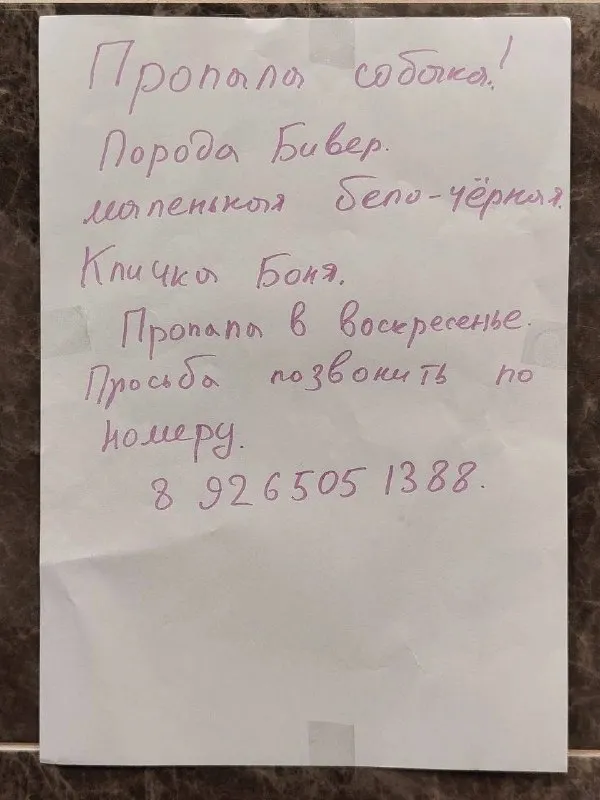 Пропала собака!
Порода Бивер.
маленькая бело-чёрная.
Кличка Боня.
Пропала в воскресенье.
Просьба позвонить по
номеру.
8 926 505 1388.